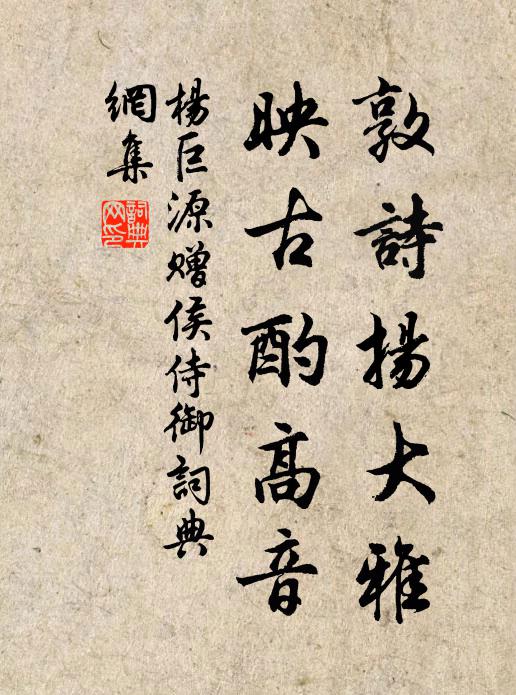 敦詩揚大雅
映古酌高音
楊巨源贈侯侍御詞典
網集
詞典網印